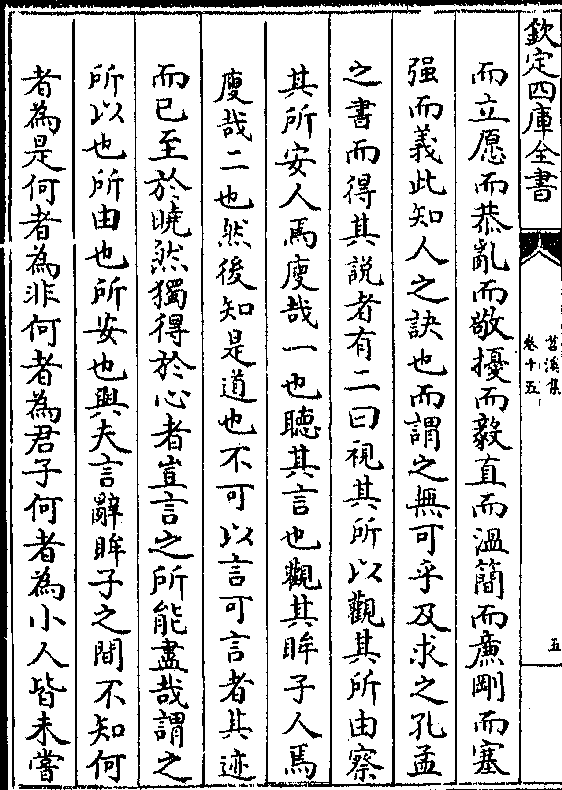 欽定四庫全書
苕溪集
卷十五
五
而立愿而恭亂而敬擾而毅直而溫簡而廉剛而塞
强而義此知人之訣也而謂之無可乎及求之孔孟
之書而得其說者有二曰視其所以觀其所由察
其所安人焉廋哉一也聽其言也觀其眸子人焉
廋哉二也然後知是道也不可以言可言者其迹
而已至於曉然獨得於心者豈言之所能盡哉謂之
所以也所由也所安也與夫言辭眸子之間不知何
者為是何者為非何者為君子何者為小人皆未嘗